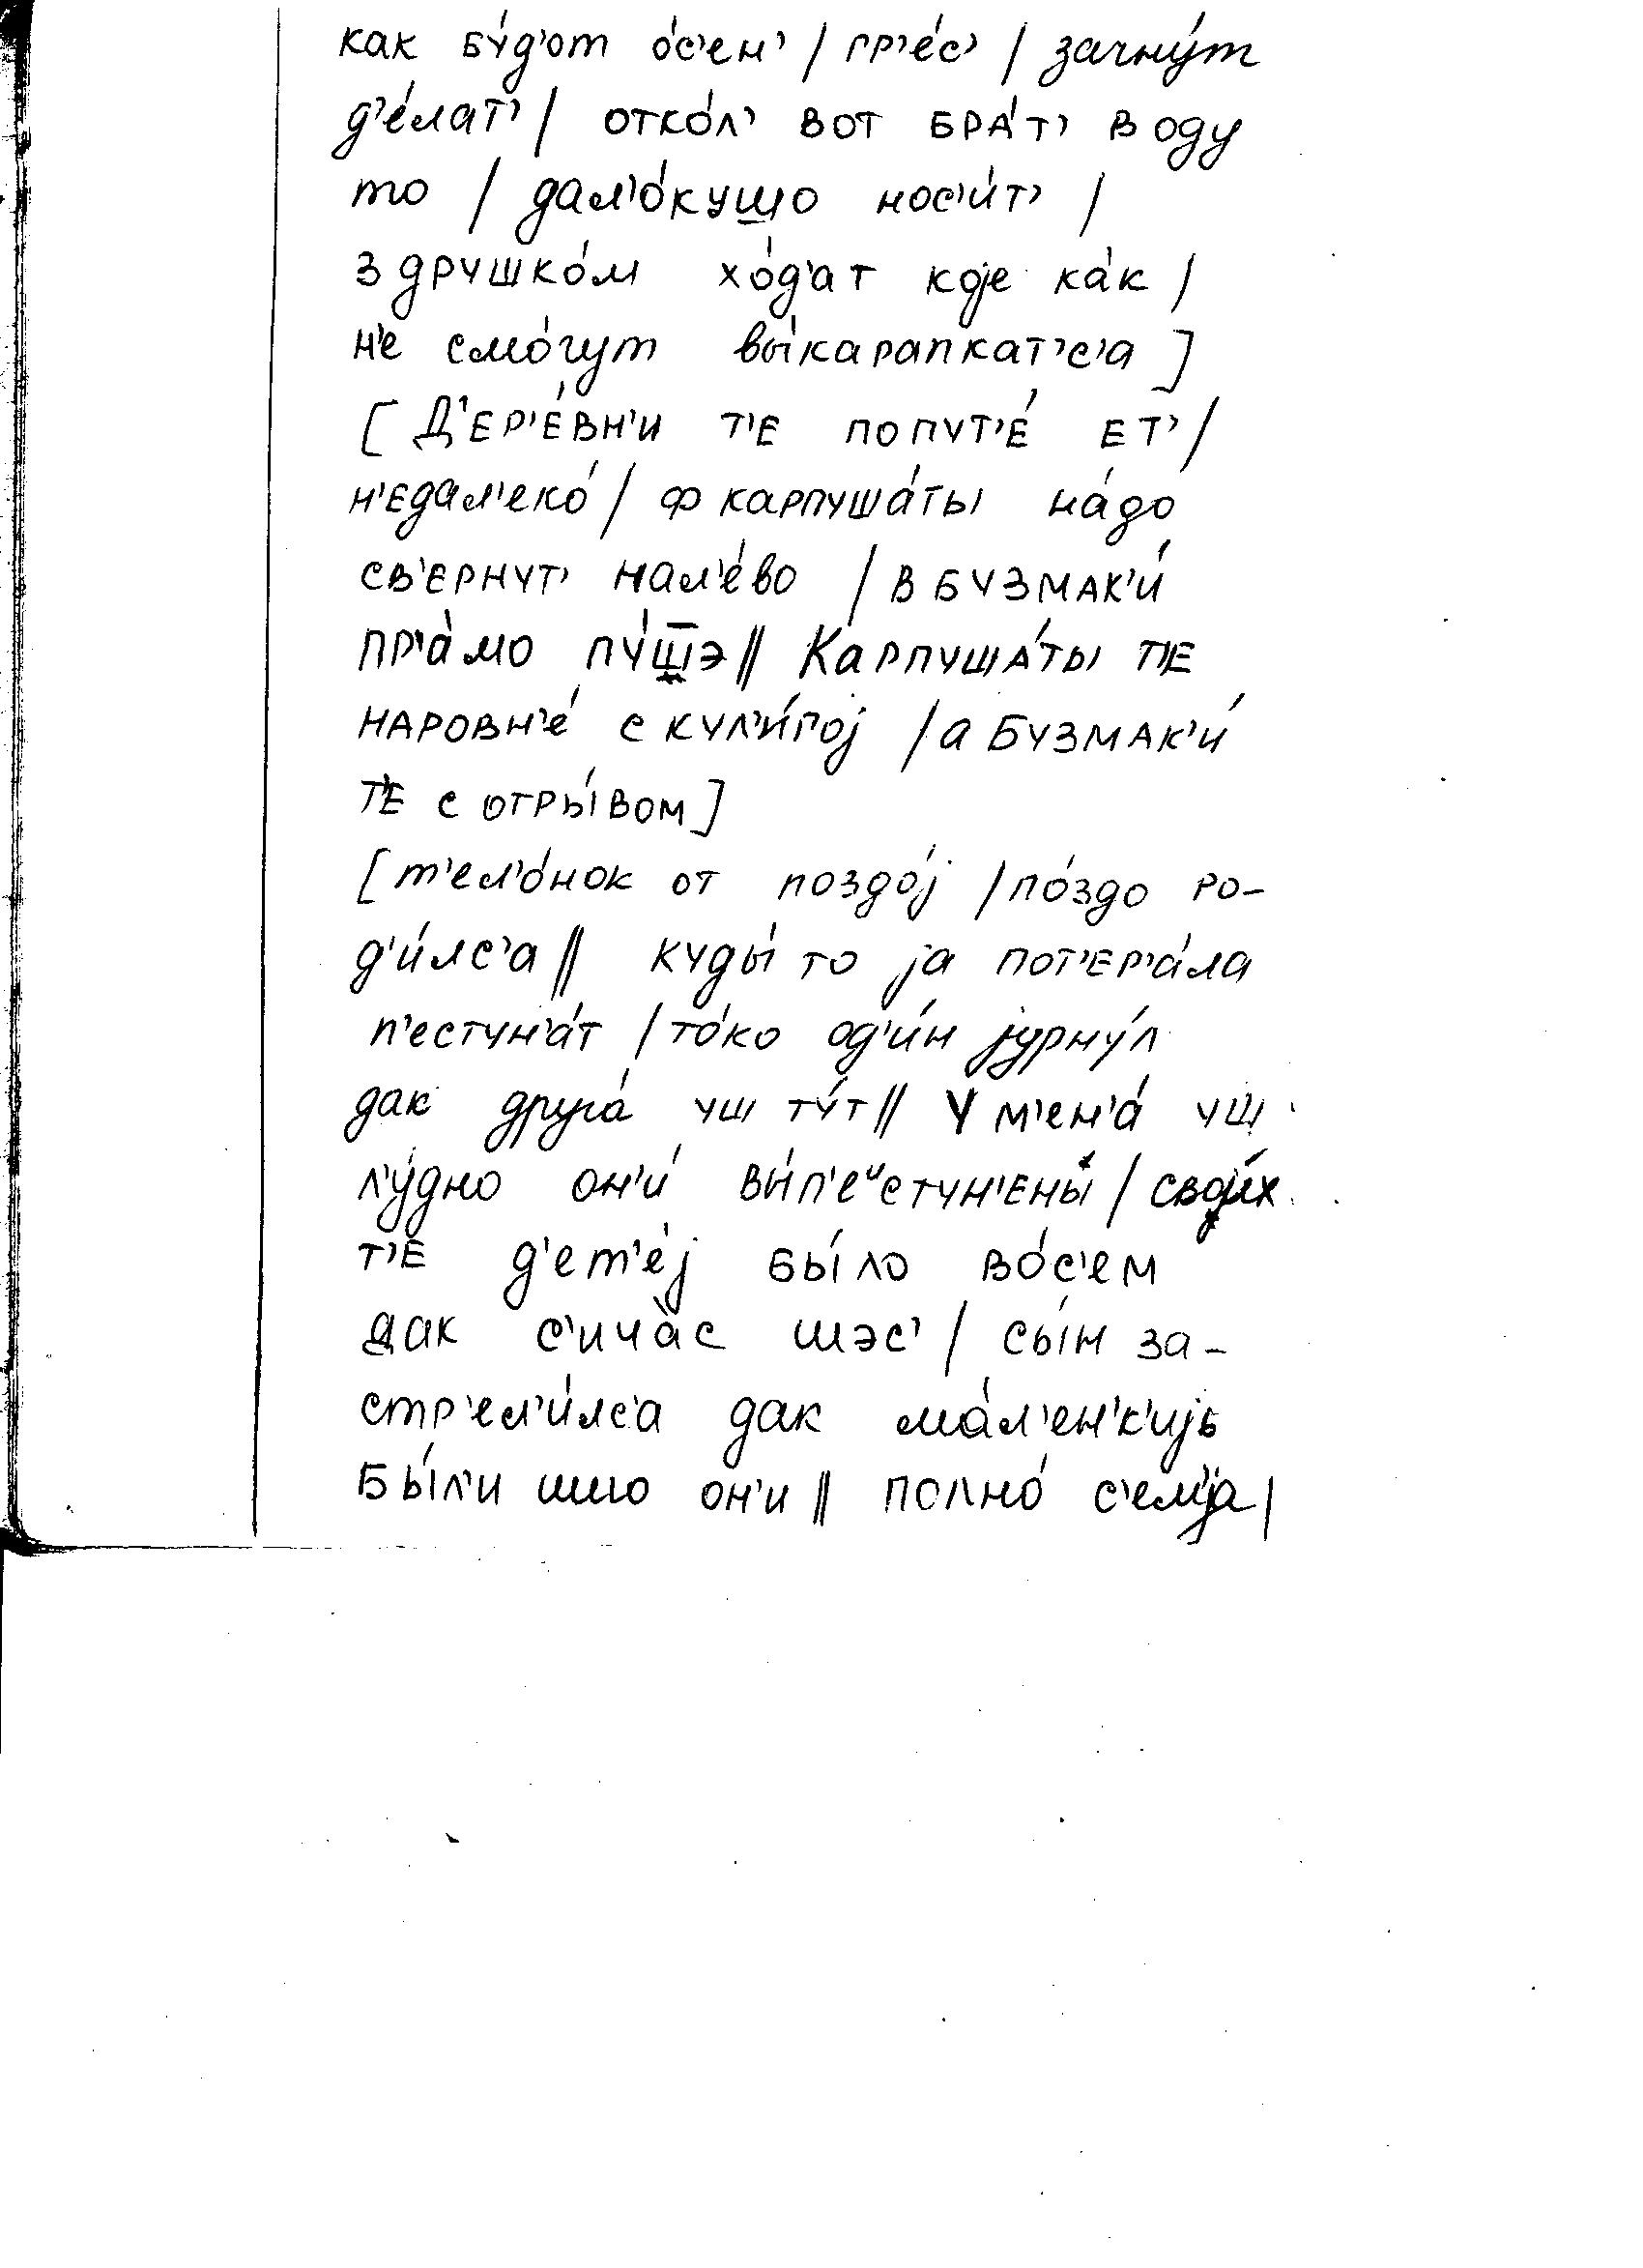 как бу́д'от о́с'ен' / гр'е́с' / зачну́т
д'е́лат' / отко́л' вот бра́т' воду
то / дал'о́кушо нос'и́т' /
з друшко́м хо́д'ат које ка́к /
н'е смо́гут вы́карапкат'с'а ]
[ Д'ер'е́вн'и т'е попут'е́ ет' /
н'едал'еко́ / ф карпуша́ты на́до
св'ернут' нал'е́во / в Бузмак'и́
пр'а́мо пу́шэ // Карпуша́ты т'е
наровн'е́ с кул'и́гој / а Бузмак'и́
т'е с отры́вом ]
[ т'ел'о́нок от поздо́ј / по́здо ро-
д'и́лс'а // куды́ то ја пот'ер'а́ла
п'естун'а́т / то́ко од'и́н јурну́л
дак друга́ уш ту́т // У м'ен'а́ уш
л'у́дно он'и́ вы́п'еᵘстун'ены / свои́х
т'е д'ет'е́ј бы́ло во́с'ем
дак с'ича̀с шэс' / сы́н за-
стр'ел'и́лс'а дак ма́л'ен'к'ијь
бы́л'и ишо он'и // полно́ с'емја /